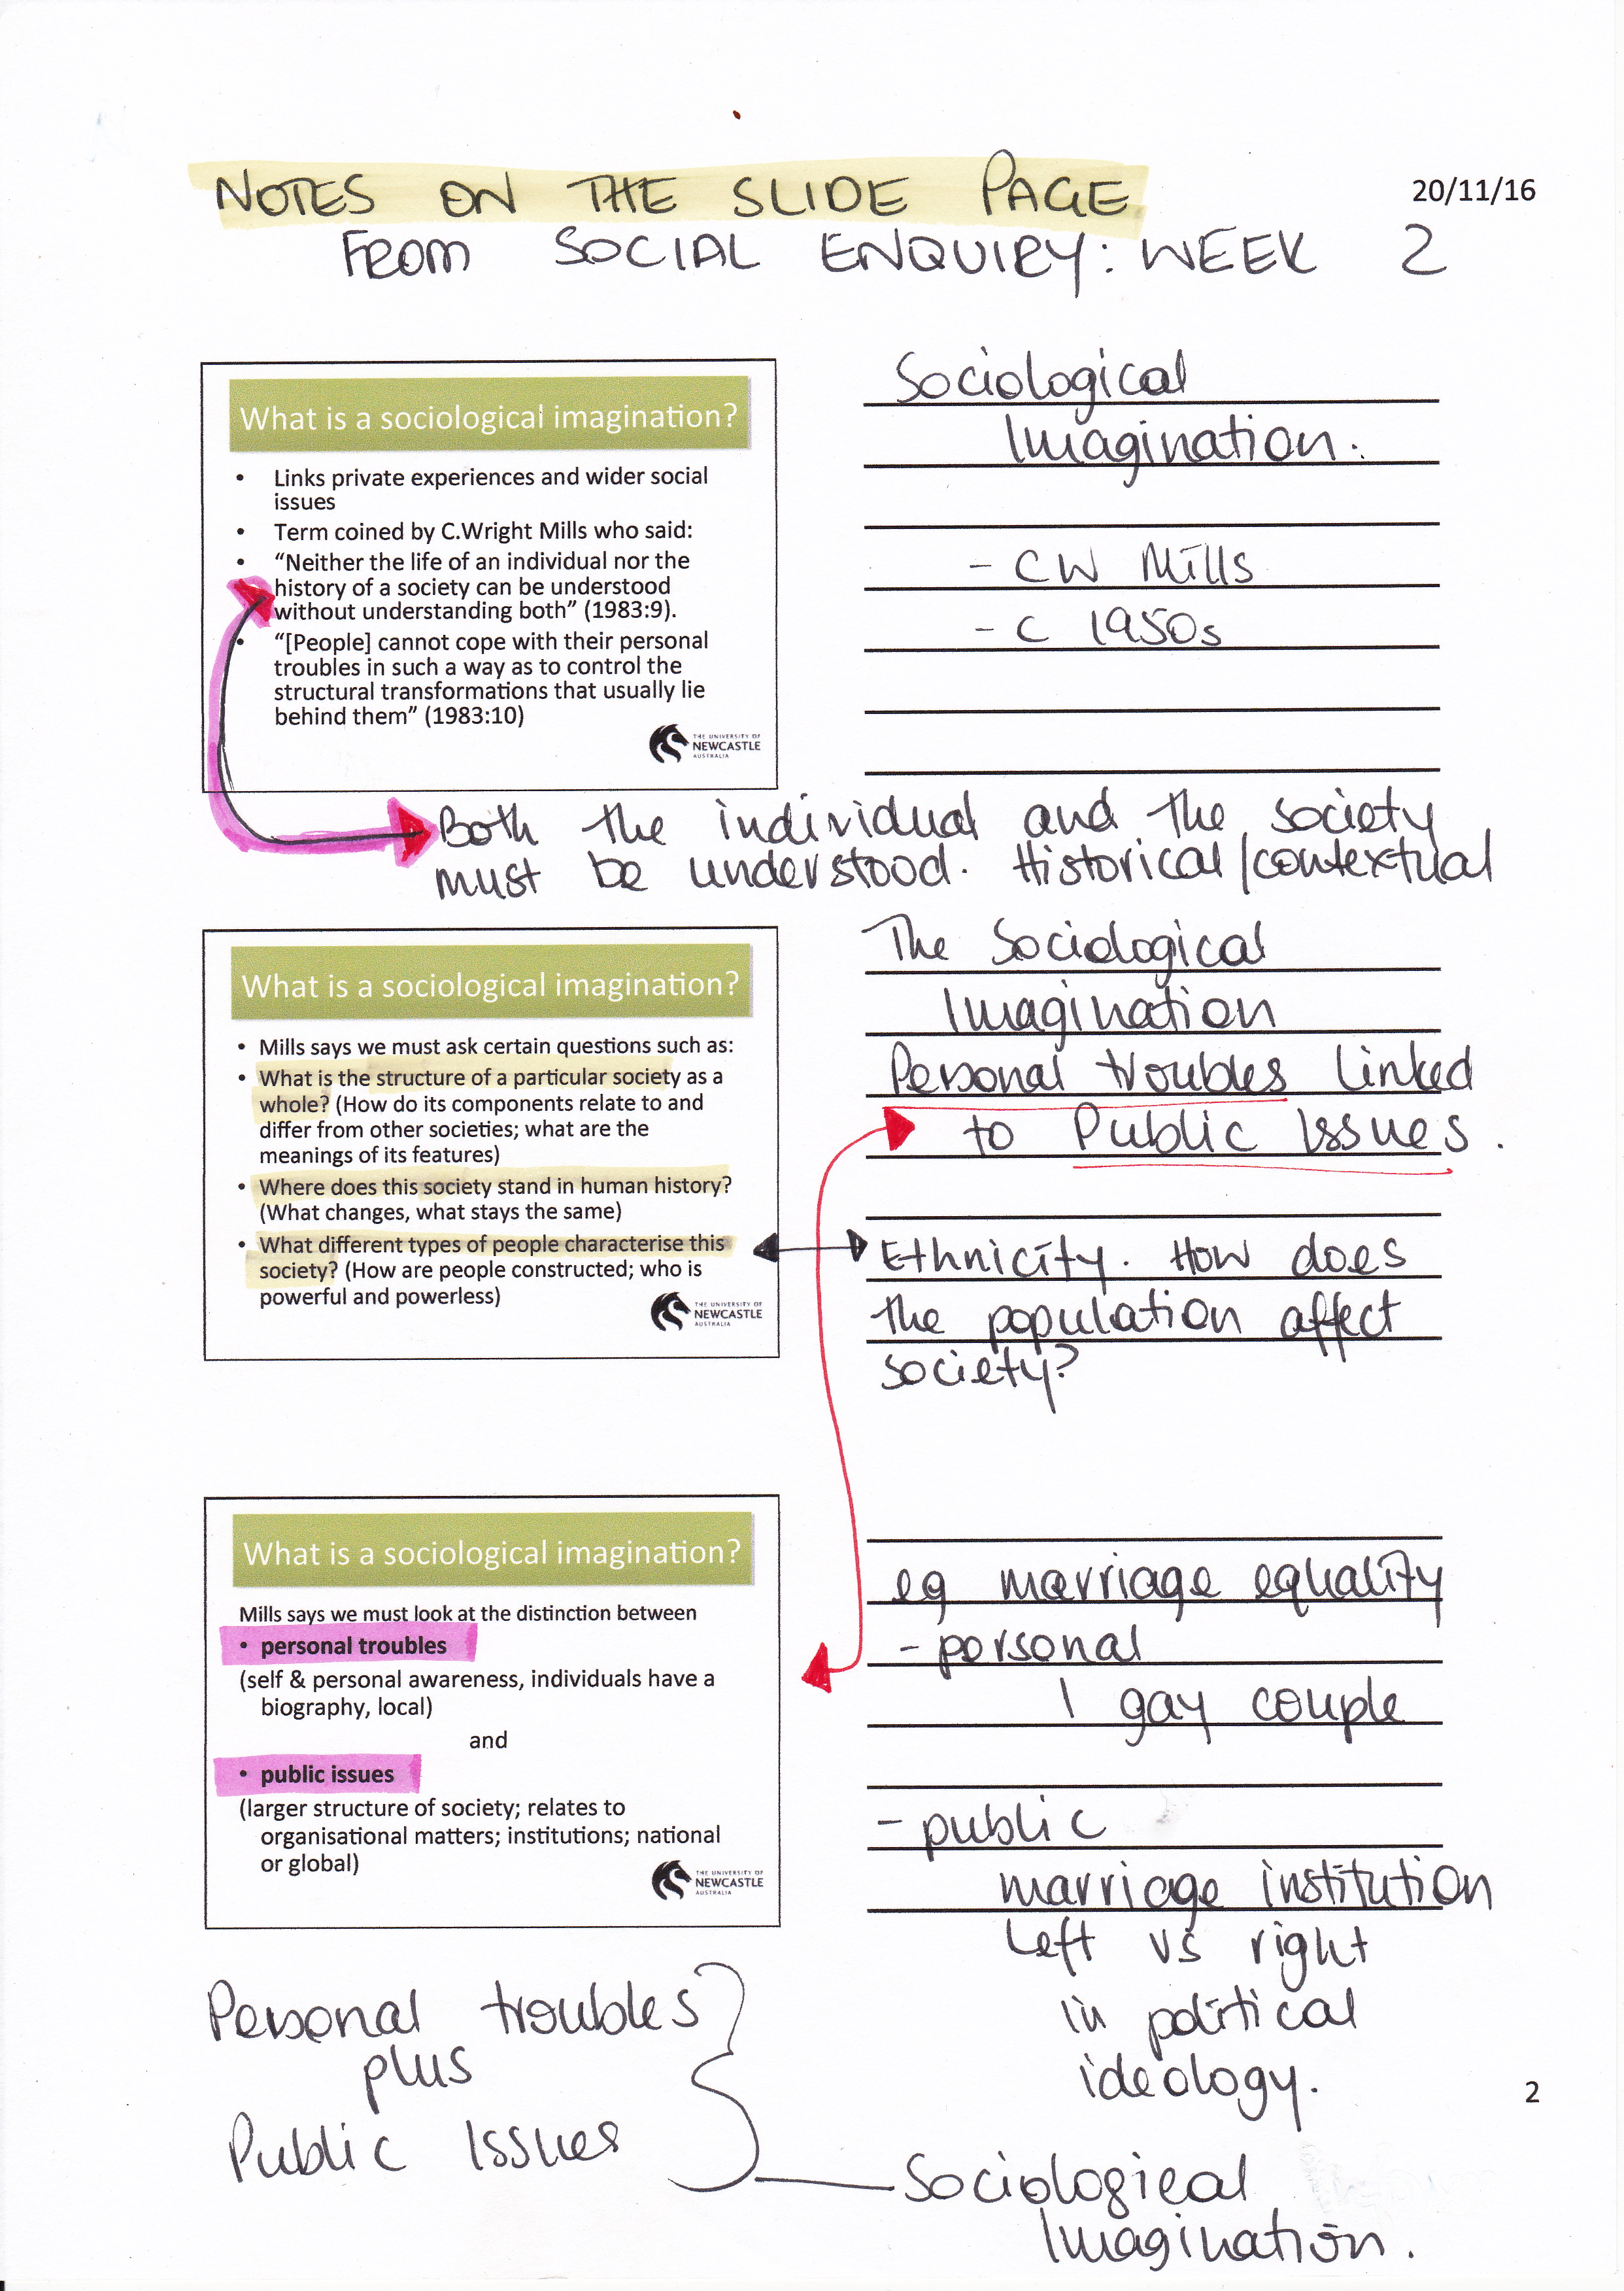 NOTES ON THE SLIDE PAGE
20/11/16
FROM SOCIAL ENQUIRY: WEEK 2
What is a sociological imagination?
• Links private experiences and wider social
issues
• Term coined by C.Wright Mills who said:
• “Neither the life of an individual nor the
history of a society can be understood
without understanding both” (1983:9).
• “[People] cannot cope with their personal
troubles in such a way as to control the
structural transformations that usually lie
behind them” (1983:10)
THE UNIVERSITY OF
NEWCASTLE
AUSTRALIA
Sociological
Imagination.
- CW Mills
- C 1950s
Both the individual and the society
must be understood. Historical/contextual
What is a sociological imagination?
• Mills says we must ask certain questions such as:
• What is the structure of a particular society as a
whole? (How do its components relate to and
differ from other societies; what are the
meanings of its features)
• Where does this society stand in human history?
(What changes, what stays the same)
• What different types of people characterise this
society? (How are people constructed; who is
powerful and powerless)
THE UNIVERSITY OF
NEWCASTLE
AUSTRALIA
The Sociological
Imagination
Personal troubles linked
to Public Issues.
Ethnicity. How does
the population affect
society?
What is a sociological imagination?
Mills says we must look at the distinction between
• personal troubles
(self & personal awareness, individuals have a
biography, local)
and
• public issues
(larger structure of society; relates to
organisational matters; institutions; national
or global)
THE UNIVERSITY OF
NEWCASTLE
AUSTRALIA
eg marriage equality
- personal
1 gay couple
- public
marriage institution
Left vs right
in political
ideology.
Personal troubles
plus
Public Issues
2
Sociological
Imagination.